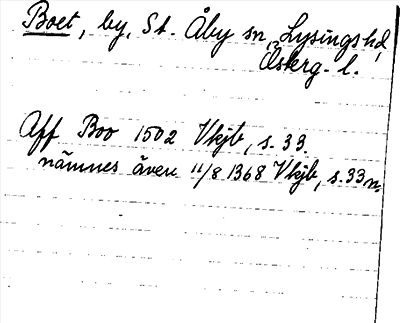 Boet, by, St. Åby sn, Lysings hd,
Österg. l.
Aff Boo 1502 Vkjb, s. 33.
nämnes även 11/8 1368 Vkjb, s. 33 n.